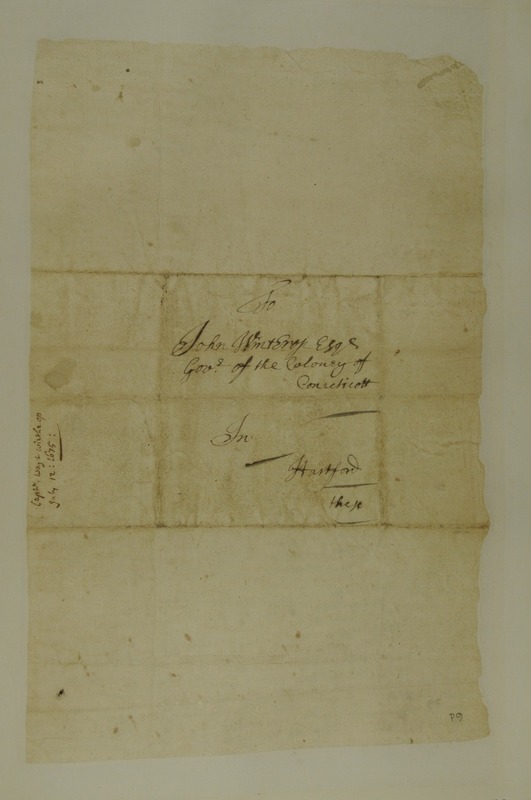 To
John Winthrop Esqe
Govr of the Coloney of
Conecticott
In
Hartford
these
Captn. Waite Winthrop
July 12: 1675: